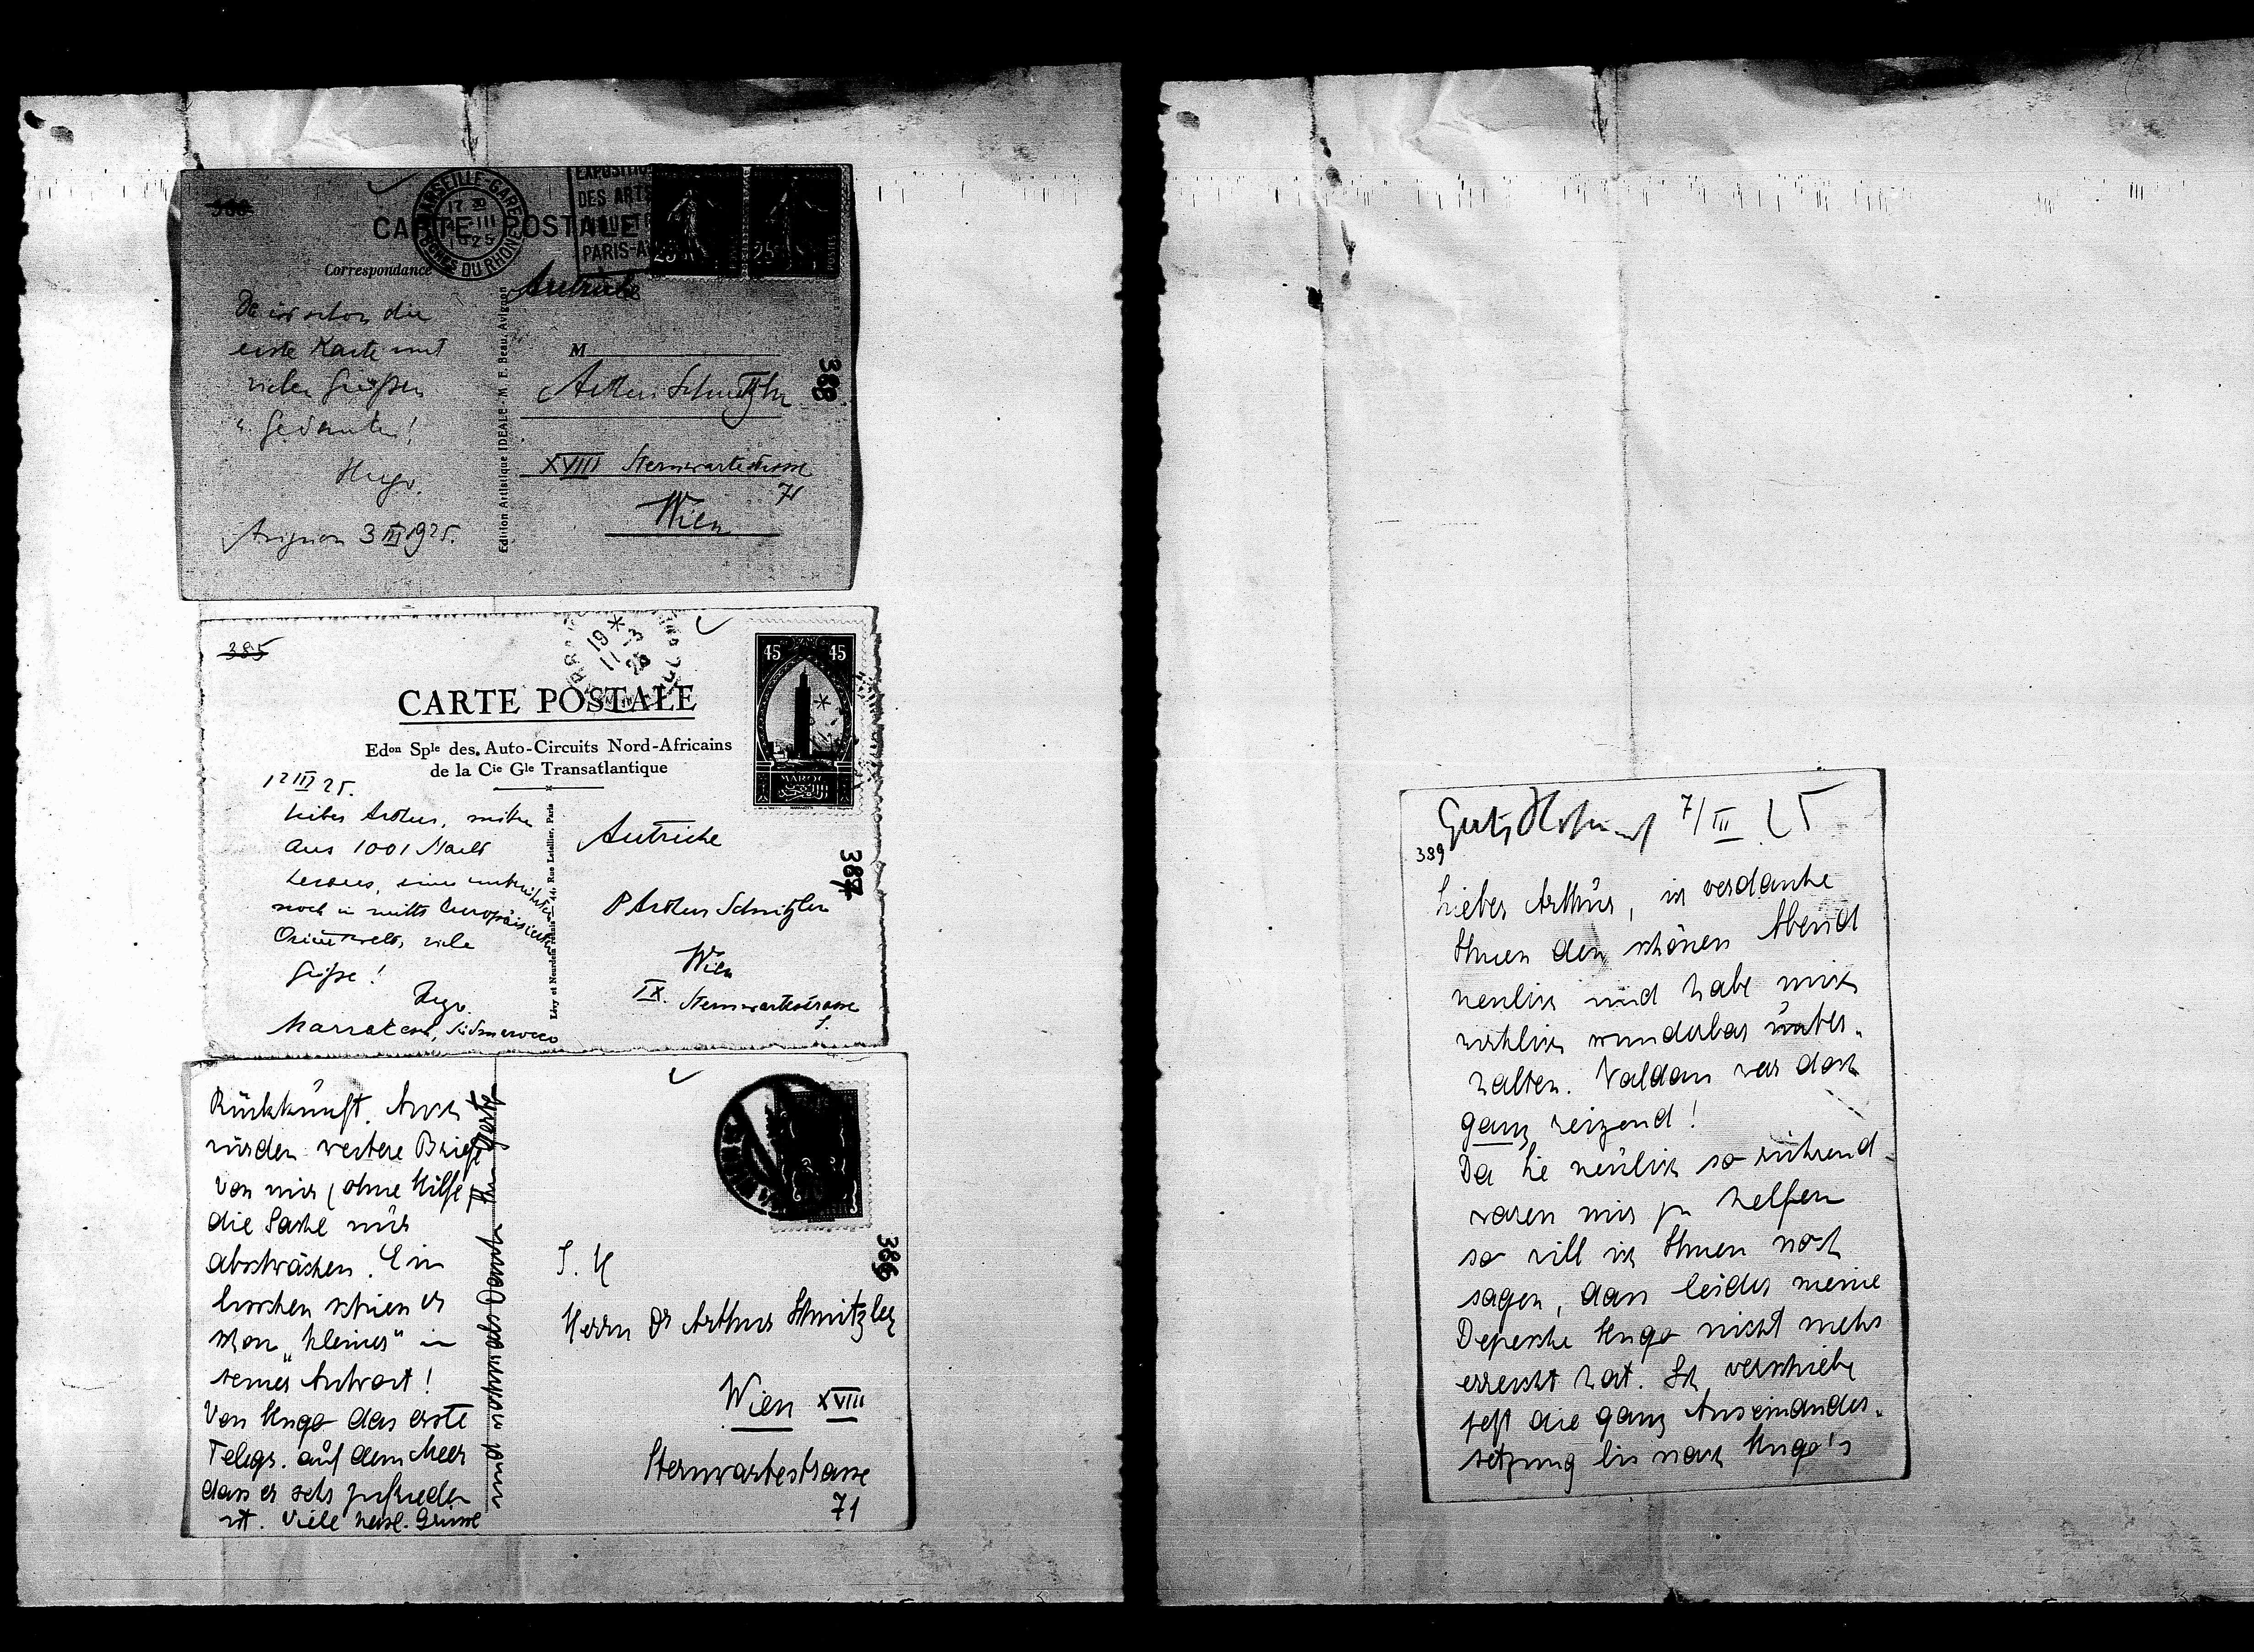 388
MARSEILLE-GARE
17 30
III
1925
BCHES DU RHONE
EXPOSITION
DES ARTS
PARIS-A
CARTE POSTALE
25c
25c
POSTES
Correspondance
Autriche
Da ist schon die
erste Karte mit
vielen Grüßen
u. Gedanken!
Hugo.
Avignon 3 III 1925.
Edition Artistique IDEALE - M. E. Beau, Avignon
M
Arthur Schnitzler
XVIII Sternwartestrasse
71
Wien
388
385
19 *
11-3
25
45 45
MAROC
CARTE POSTALE
Edon Sple des Auto-Circuits Nord-Africains
de la Cie Gle Transatlantique
12 III 25.
Lieber Arthur, mitten
aus 1001 Nacht
heraus, einer unberührten
noch in nichts europäisierten
Orientwelt, viele
Grüße!
Hugo
Marrakesch, Südmarocco
Lévy et Neurdein réunis, 44, Rue Letellier, Paris
Autriche
Arthur Schnitzler
Wien
IX. Sternwartestrasse
387
Rückkunft. Auch
würden weitere Briefe
von mir (ohne Hilfe)
die Sache nur
abschwächen. Ein
bisschen schien er
schon „kleiner“ in
seiner Antwort!
Von Hugo das erste
Telegr. auf dem Meer
dass er sehr zufrieden
ist. Viele herzl. Grüsse
und nochmals Dank Ihre Gerty
S. H
Herrn Dr Arthur Schnitzler
Wien XVIII
Sternwartestrasse
71
386
Gerty Hofmannsthal 7/III 25
389
Lieber Arthur, ich verdanke
Ihnen den schönen Abend
neulich und habe mich
wirklich wunderbar unter-
halten. Valdau war doch
ganz reizend!
Da Sie neulich so rührend
waren mir zu helfen
so will ich Ihnen noch
sagen, dass leider meine
Depesche Hugo nicht mehr
erreicht hat. Ich verschiebe
jetzt die ganz Auseinander-
setzung bis nach Hugo's